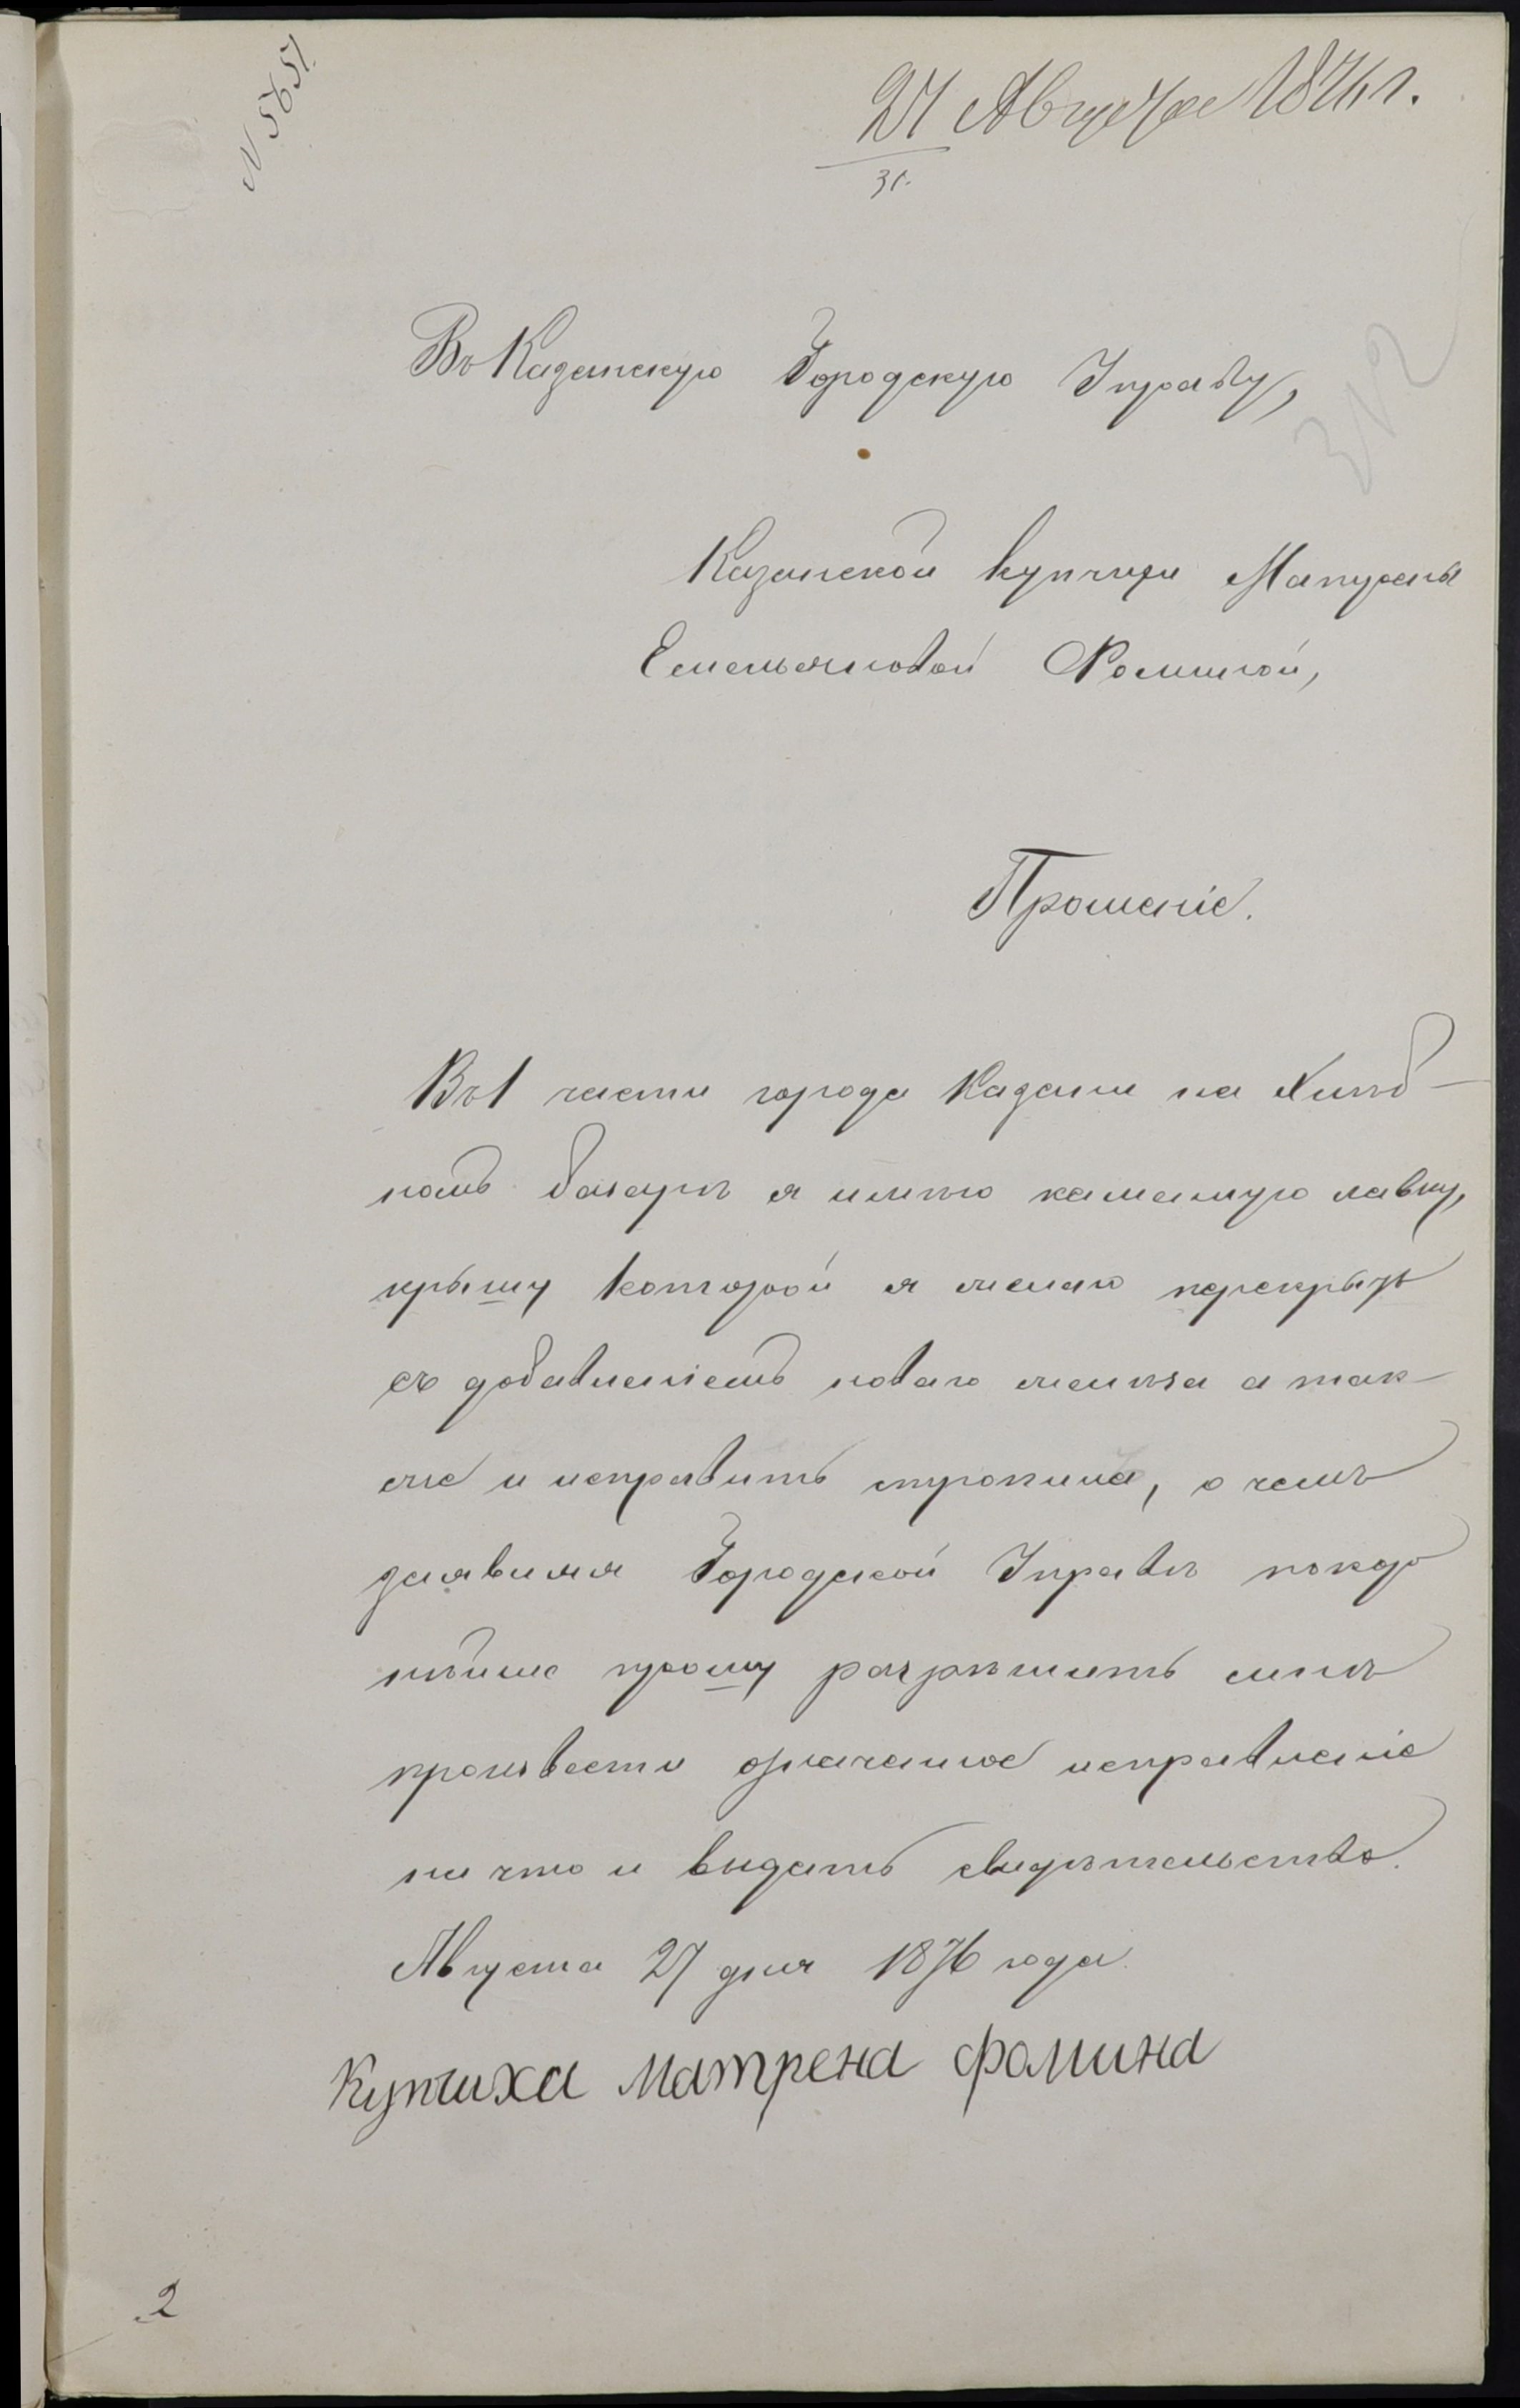 N 5657.
27 Августа 1876 г.
31.
312
Въ Казанскую Городскую Управу,
Казанской купчихи Матрены
Емельяновой Фоминой,
Прошеніе.
Въ 1 части города Казани на Хлѣб-
номъ базарѣ я имѣю каменную лавку,
крышу которой я желаю перекрыть
съ добавленіемъ новаго желѣза а так
же и исправить стропила, о чемъ
заявляя Городской Управѣ покор
нѣйше прошу разрѣшить мнѣ
произвести означенное исправленіе
на что и выдать свидѣтельство.
Августа 27 дня 1876 года.
Купчиха Матрена Фомина
2